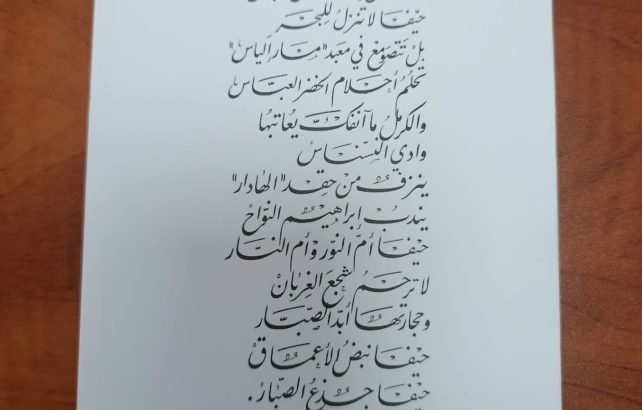 حيفا لا تنزل للبحر
بل تتصومع في معبد "مار الياس"
تحلم أحلام الخضر العباس
والكرمل ما آنفك يعاتبها
وادي النسناس
ينزف من حقد "الهادار"
يندب إبراهيم النواح
حيفا أم النور وأم النار
لا ترحم شجع الغربان
وحجارتها أبد الصبار
حيفا نبض الأعماق
حيفا جذع الصبار.